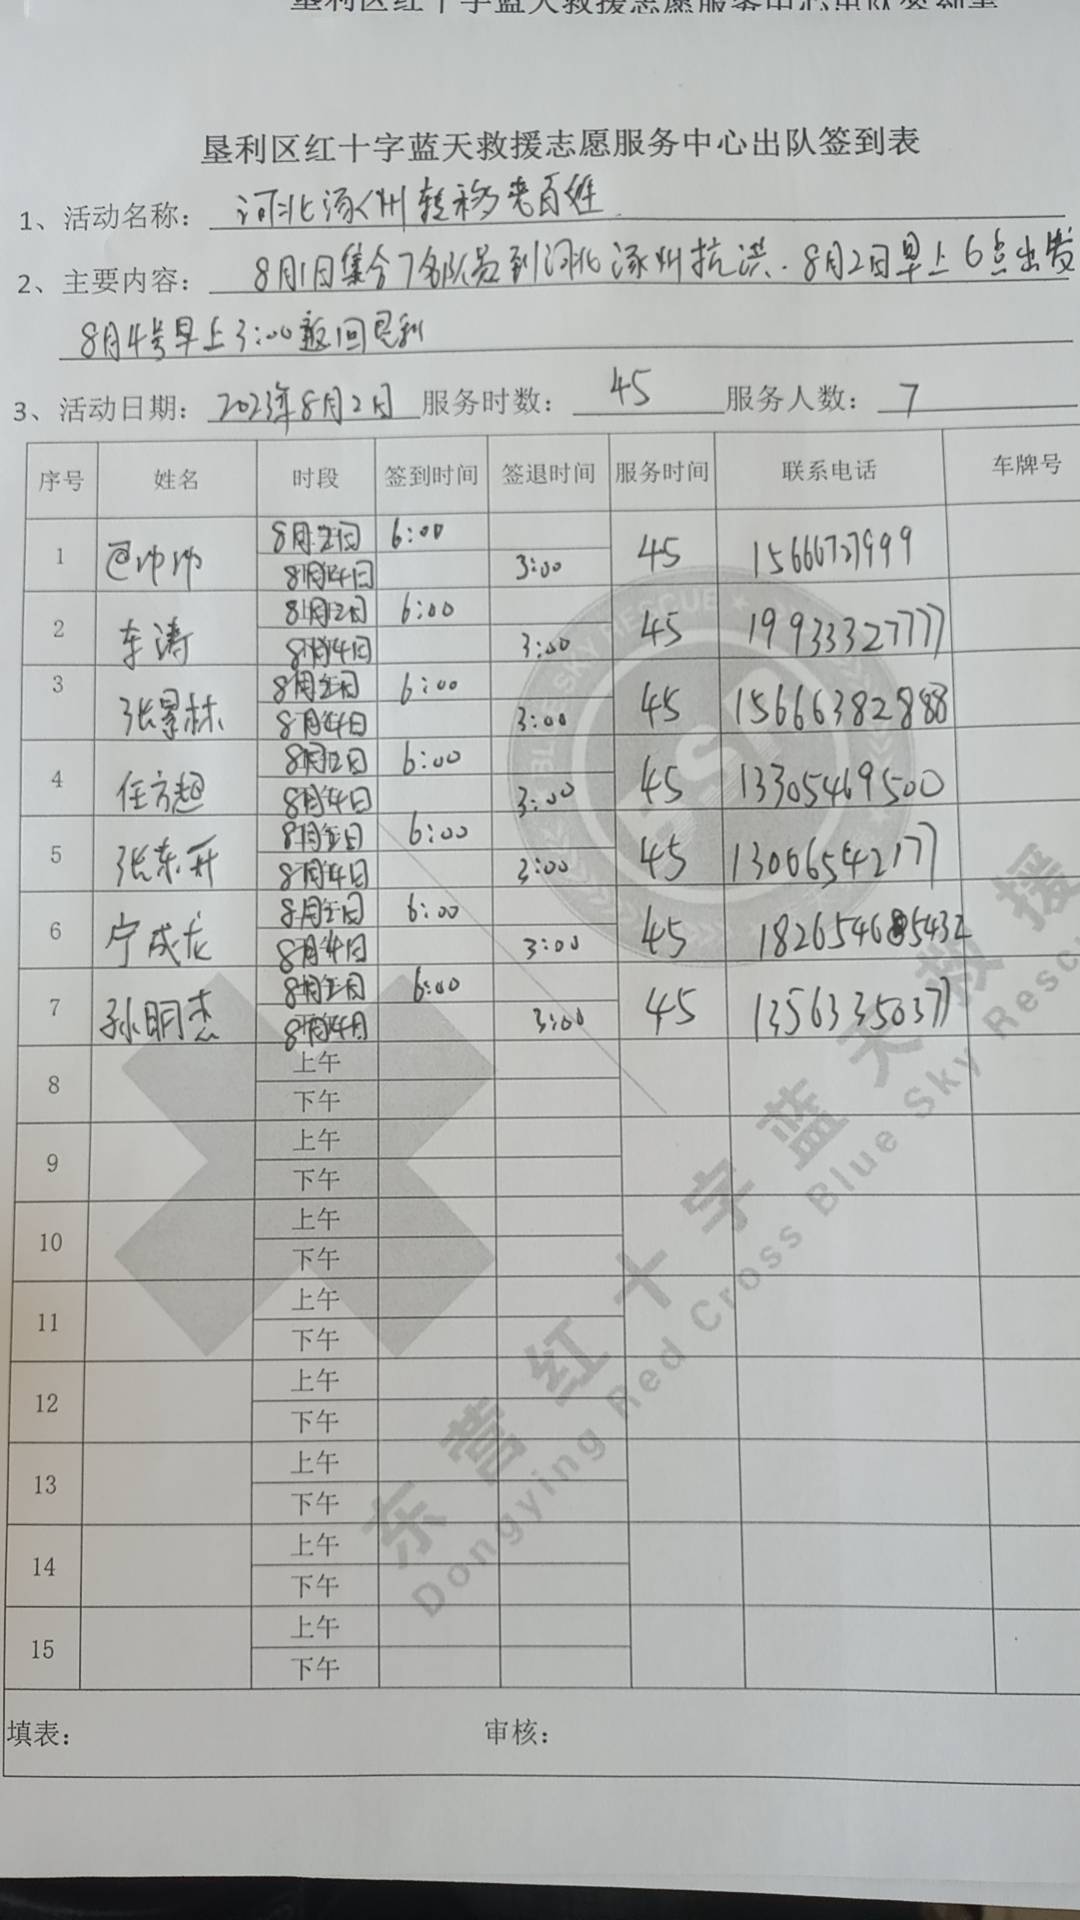 垦利区红十字蓝天救援志愿服务中心出队签到表
垦利区红十字蓝天救援志愿服务中心出队签到表
1、活动名称：河北涿州转移老百姓
2、主要内容：8月1日集合7名队员到河北涿州抗洪.8月2日早上6点出发
8月4号早上3:00返回垦利
3、活动日期：2023年8月2日 服务时数：45 服务人数：7
序号 姓名 时段 签到时间 签退时间 服务时间 联系电话 车牌号
1 帅帅 8月2日 6:00 45 15666727999
8月4日 3:00
2 车涛 8月2日 6:00 45 19933327777
8月4日 3:00
3 张景林 8月2日 6:00 45 15666382888
8月4日 3:00
4 任方超 8月2日 6:00 45 13305469500
8月4日 3:00
5 张东开 8月2日 6:00 45 13006542177
8月4日 3:00
6 宁成龙 8月2日 6:00 45 182654685432
8月4日 3:00
7 孙明杰 8月2日 6:00 45 13563350377
8月4日 3:00
8 上午
下午
9 上午
下午
10 上午
下午
11 上午
下午
12 上午
下午
13 上午
下午
14 上午
下午
15 上午
下午
填表： 审核：
BLUE SKY RESCUE
BSR
东营红十字蓝天救援
Dongying Red Cross Blue Sky Rescu